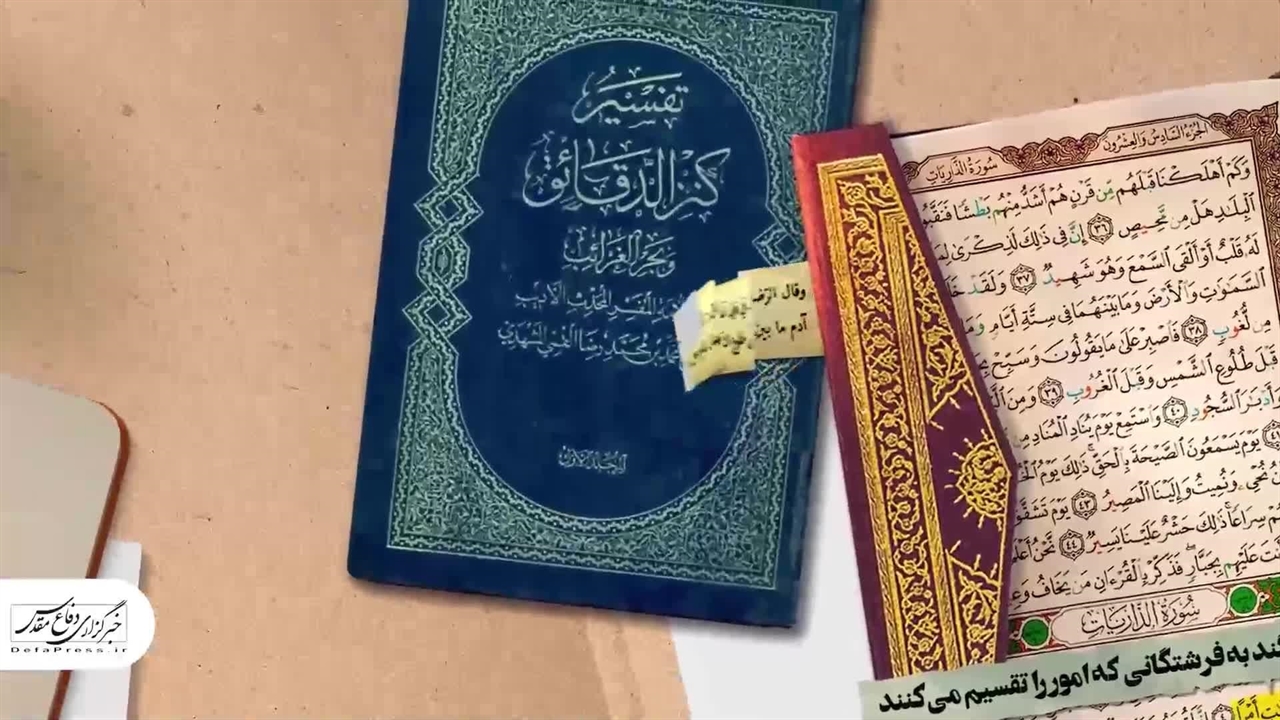 تفسير
كنز الدقائق
وبحر الغرائب
المفسر المحدث الأديب
بن محمد رضا القمي المشهدي
المجلد الأول
وقال الرضـ
آدم ما بين
الجزء السادس والعشرون
سورة الذاريات
وَكَمْ أَهْلَكْنَا قَبْلَهُم مِّن قَرْنٍ هُمْ أَشَدُّ مِنْهُم بَطْشًا فَنَقَّبُوا
ٱلْبِلَٰدِ هَلْ مِن مَّحِيصٍ ٣٦ إِنَّ فِى ذَٰلِكَ لَذِكْرَىٰ لِمَن
لَهُۥ قَلْبٌ أَوْ أَلْقَى ٱلسَّمْعَ وَهُوَ شَهِيدٌ ٣٧ وَلَقَدْ
ٱلسَّمَٰوَٰتِ وَٱلْأَرْضَ وَمَا بَيْنَهُمَا فِى سِتَّةِ أَيَّامٍ وَمَا
مِن لُّغُوبٍ ٣٨ فَٱصْبِرْ عَلَىٰ مَا يَقُولُونَ وَسَبِّحْ
قَبْلَ طُلُوعِ ٱلشَّمْسِ وَقَبْلَ ٱلْغُرُوبِ ٣٩ وَمِنَ
وَأَدْبَٰرَ ٱلسُّجُودِ ٤٠ وَٱسْتَمِعْ يَوْمَ يُنَادِ ٱلْمُنَادِ مِن
يَوْمَ يَسْمَعُونَ ٱلصَّيْحَةَ بِٱلْحَقِّ ذَٰلِكَ يَوْمُ
نُحْىِۦ وَنُمِيتُ وَإِلَيْنَا ٱلْمَصِيرُ ٤٣ يَوْمَ تَشَقَّقُ
سِرَاعًا ذَٰلِكَ حَشْرٌ عَلَيْنَا يَسِيرٌ ٤٤ نَّحْنُ أَعْلَمُ
عَلَيْهِم بِجَبَّارٍ فَذَكِّرْ بِٱلْقُرْءَانِ مَن يَخَافُ
سورة الذاريات
به فرشتگانی که امور را تقسیم می‌کنند
خبرگزاری دفاع مقدس
DefaPress.ir